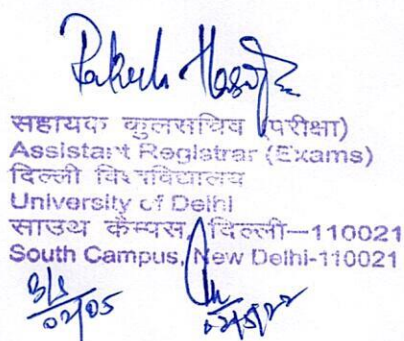 Rakesh
सहायक कुलसचिव (परीक्षा)
Assistant Registrar (Exams)
दिल्ली विश्वविद्यालय
University of Delhi
साउथ कैम्पस, दिल्ली–110021
South Campus, New Delhi-110021
02/05